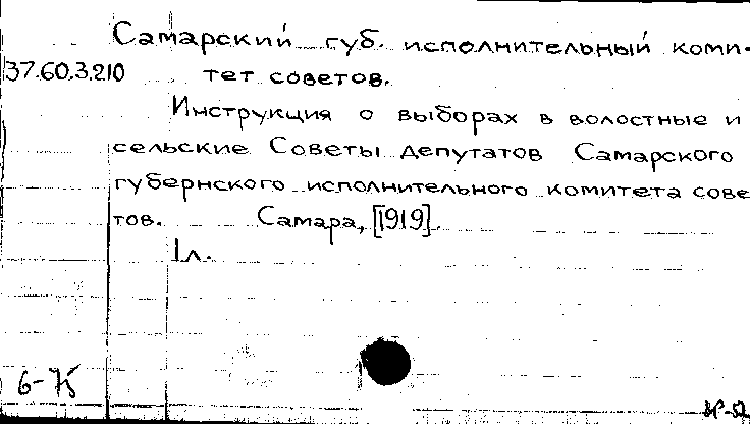 Самарский губ. исполнительный коми-
37.60.3.210 тет советов.
Инструкция о выборах в волостные и
сельские Советы депутатов Самарского
губернского исполнительного комитета сове
тов. Самара, [1919].
1 л.
6-75